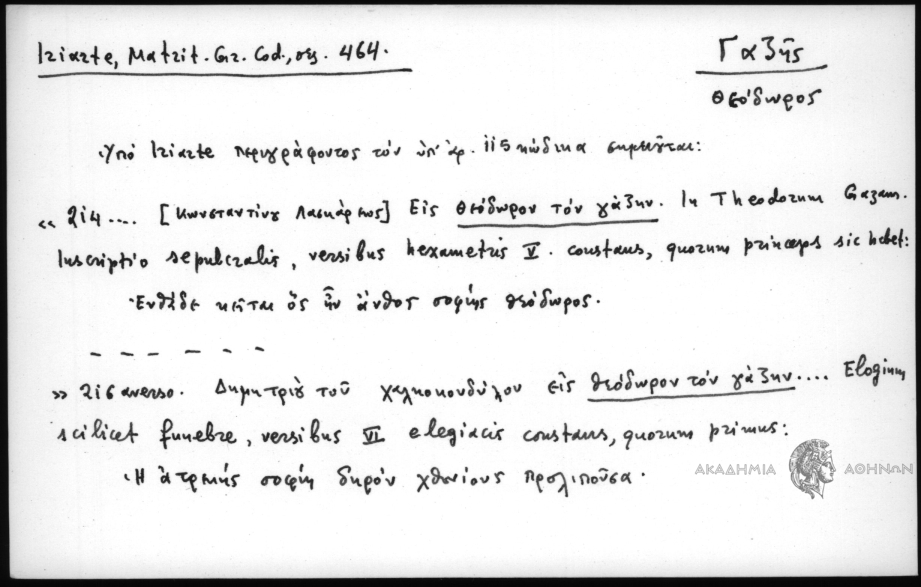 Iriarte, Matrit. Gr. Cod., σελ. 464.
Γαζῆς
Θεόδωρος
Ὑπό Iriarte περιγράφοντος τόν ὑπ' ἀρ. 115 κώδικα σημειοῦται:
« 214 .... [Κωνσταντίνου Λασκάρεως] Εἰς Θεόδωρον τόν γάζην. In Theodorum Gazam.
Inscriptio sepulcralis, versibus hexametris V. constans, quorum princeps sic habet:
Ἐνθάδε κεῖται ὅς ἦν ἄνθος σοφίης θεόδωρος.
- - - - - -
» 216 averso. Δημητρίου τοῦ χαλκοκονδύλου εἰς θεόδωρον τόν γάζην.... Elogium
scilicet funebre, versibus VI elegiacis constans, quorum primus:
Ἡ ἀτρεκής σοφίη δηρόν χθονίους προλιποῦσα.
ΑΚΑΔΗΜΙΑ ΑΘΗΝΩΝ